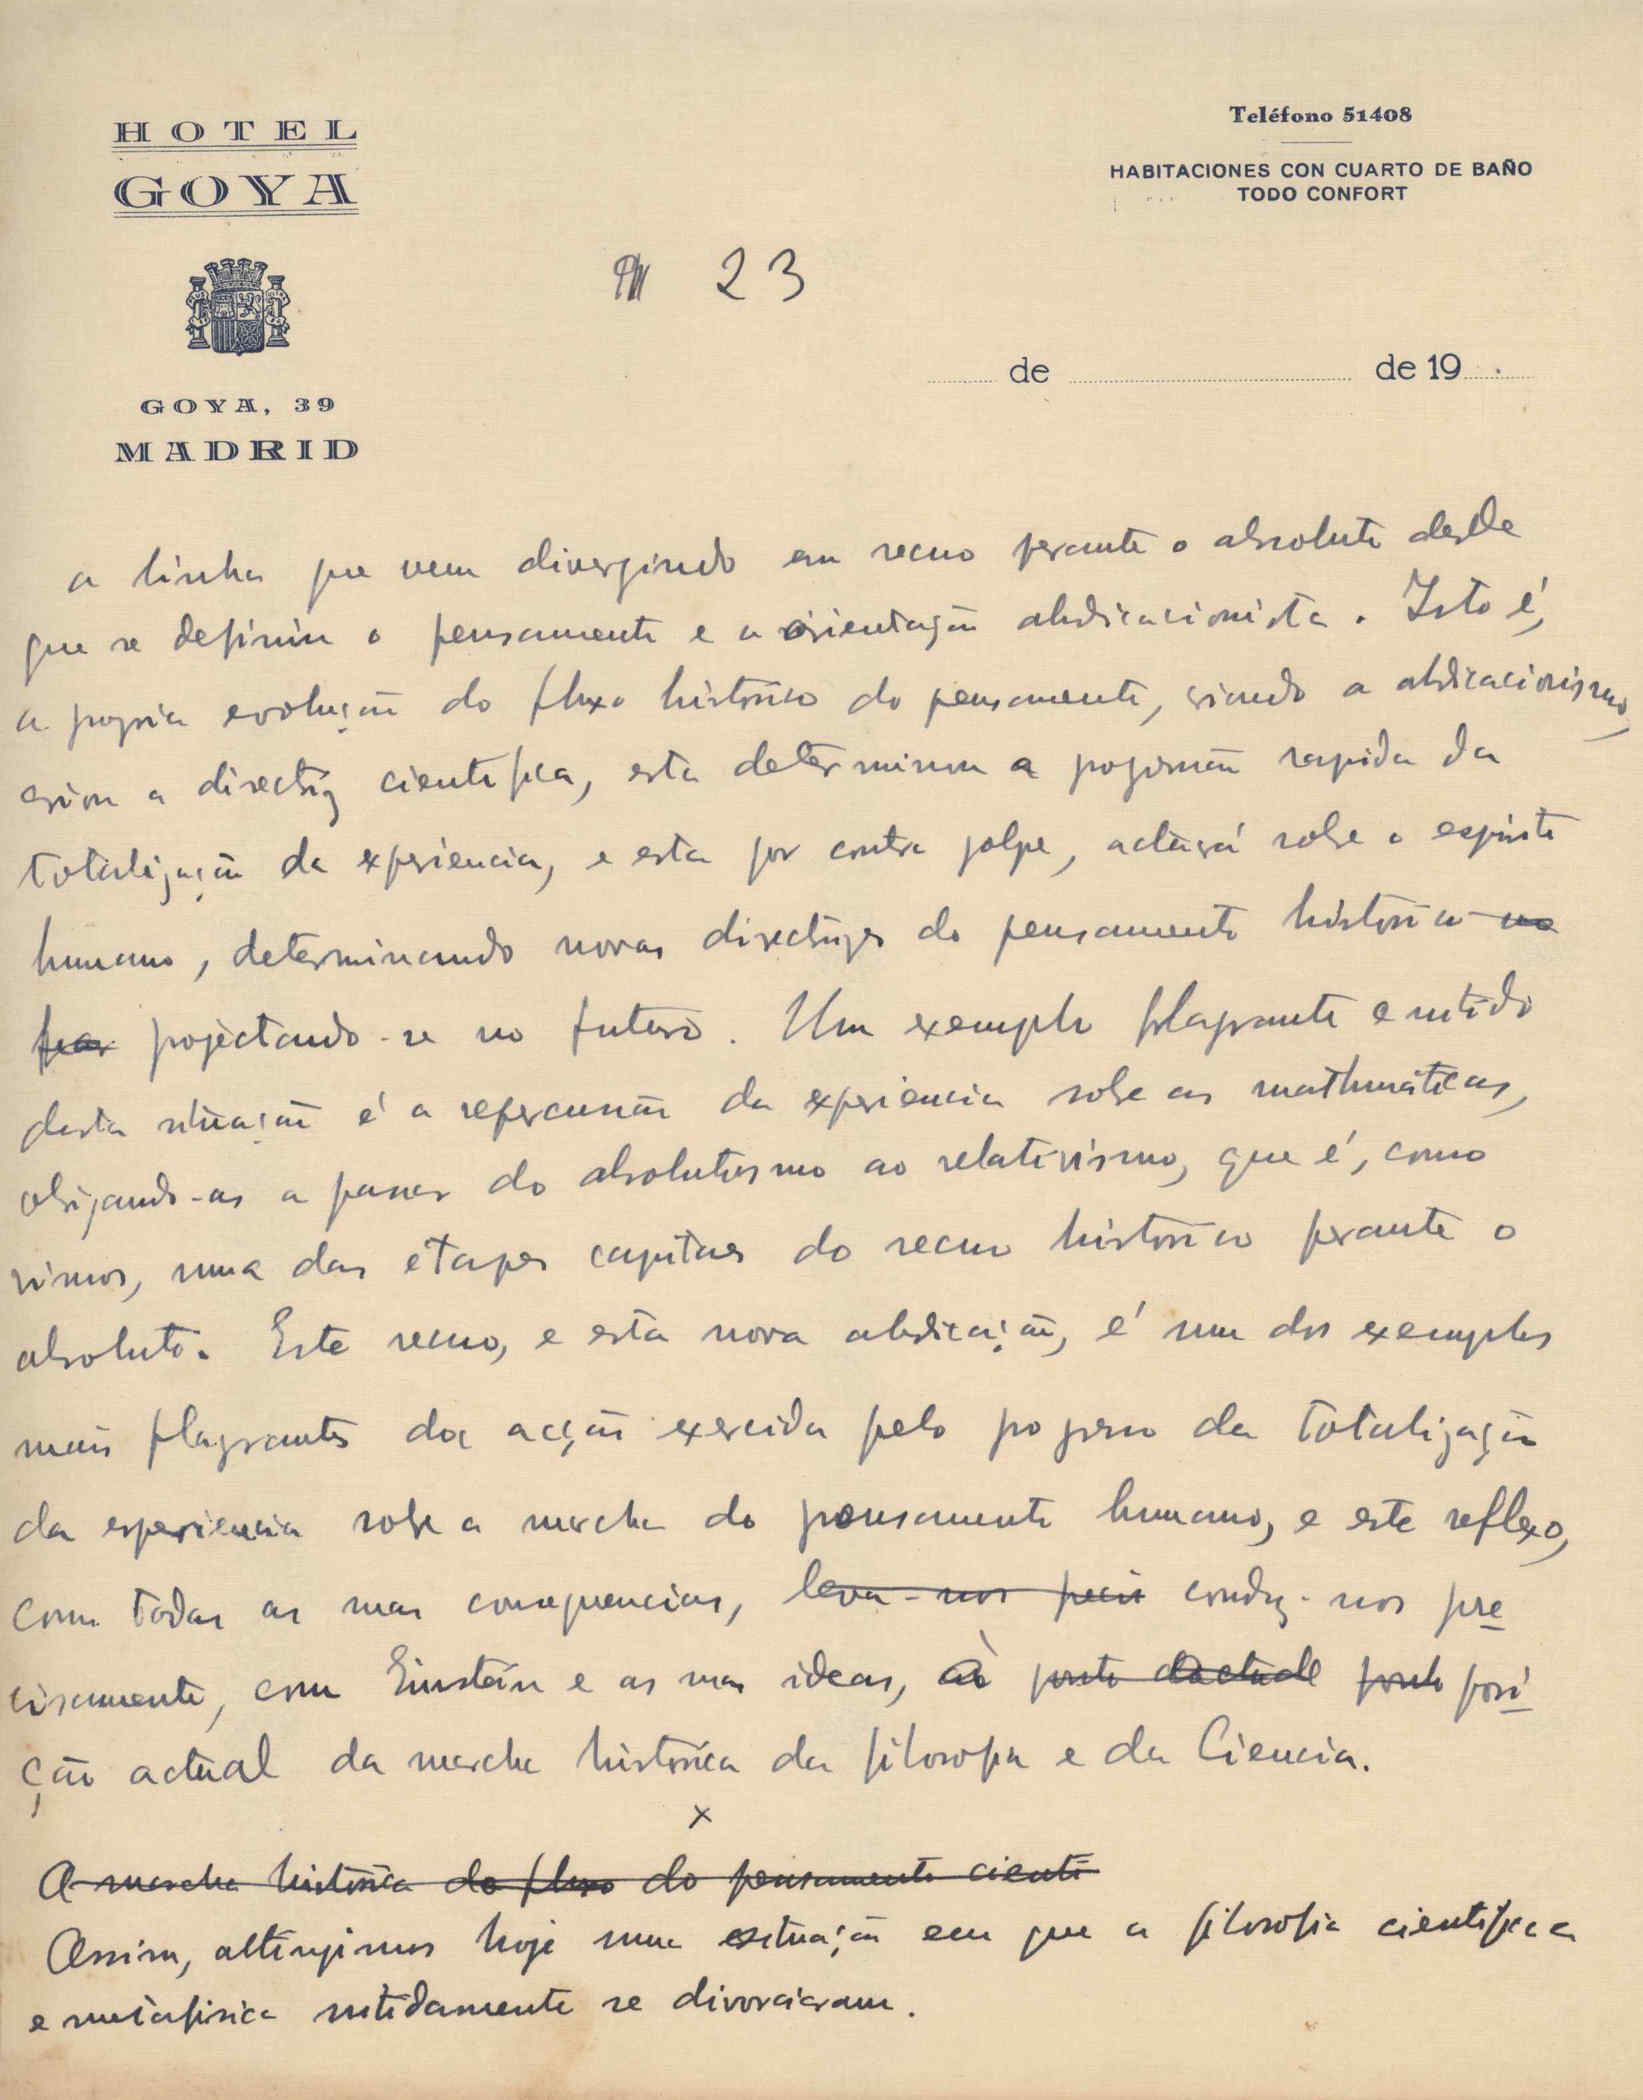 HOTEL
GOYA
GOYA, 39
MADRID
Teléfono 51408
HABITACIONES CON CUARTO DE BAÑO
TODO CONFORT
23
de de 19
a linha que vem divergindo em recuo perante o absoluto desde
que se definiu o pensamento e a orientação abdicacionista. Isto é,
a propria evolução do fluxo histórico do pensamento, criando o abdicacionismo,
criou a directriz cientifica, esta determinou a progressão rapida da
totalização da experiencia, e esta por contra golpe, actuará sobre o espirito
humano, determinando novas directrizes do pensamento histórico no
projectando-se no futuro. Um exemplo flagrante e nitido
desta situação é a repercussão da experiencia sobre as mathemáticas,
obrigando-as a passar do absolutismo ao relativismo, que é, como
vimos, uma das etapes capitaes do recuo histórico perante o
absoluto. Este recuo, e esta nova abdicação, é um dos exemplos
mais flagrantes da acção exercida pelo progresso da totalização
da experiencia sobre a marcha do pensamento humano, e este reflexo,
com todas as suas consequencias, leva-nos conduz-nos pre
cisamente, com Einstein e as suas ideas, à ponto actual ponto posi
ção actual da marcha histórica da filosofia e da Ciencia.
x
A marcha histórica do fluxo do pensamento cienti
Assim, attingimos hoje uma situação em que a filosofia cientifica
e metafisica nitidamente se divorciaram.